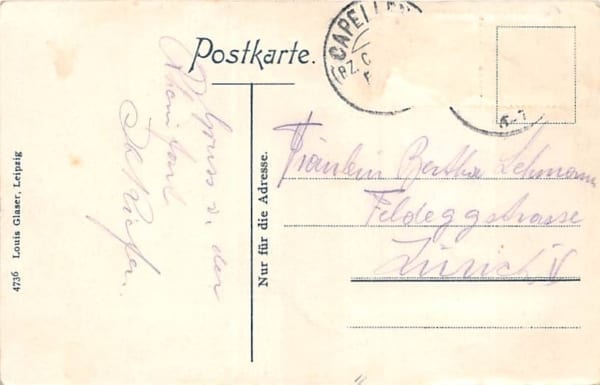 Postkarte.
CAPELLEN
(BZ. C
Gruss v. der
Nur für die Adresse.
Fräulein Bertha Lehmann
Feldeggstrasse
Zürich V
4736 Louis Glaser, Leipzig